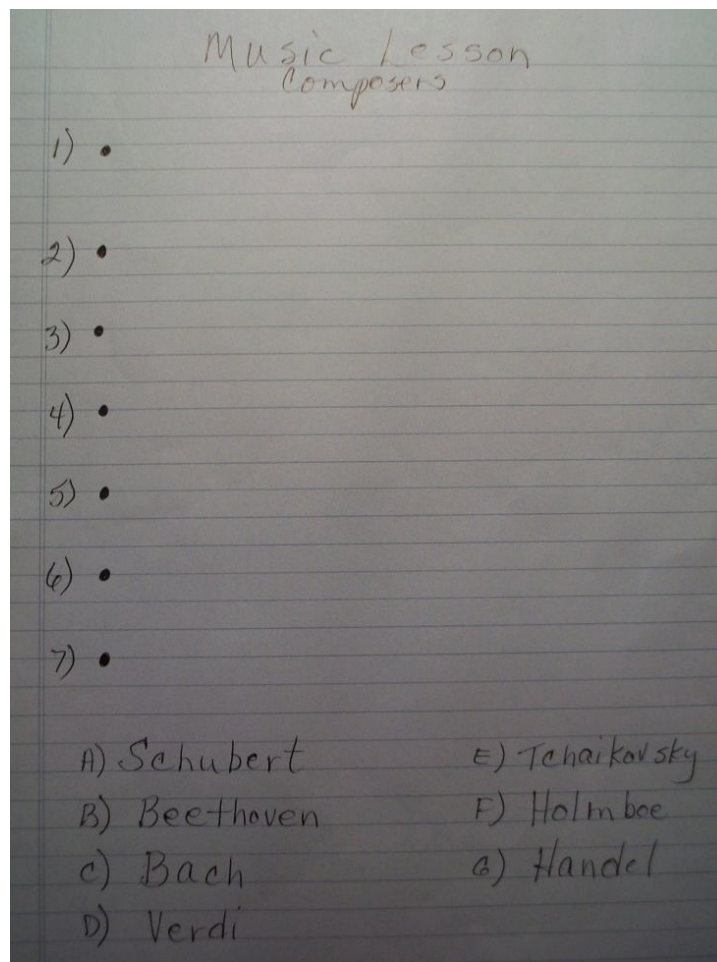 Music Lesson
Composers
1) •
2) •
3) •
4) •
5) •
6) •
7) •
A) Schubert
B) Beethoven
C) Bach
D) Verdi
E) Tchaikovsky
F) Holmboe
G) Handel